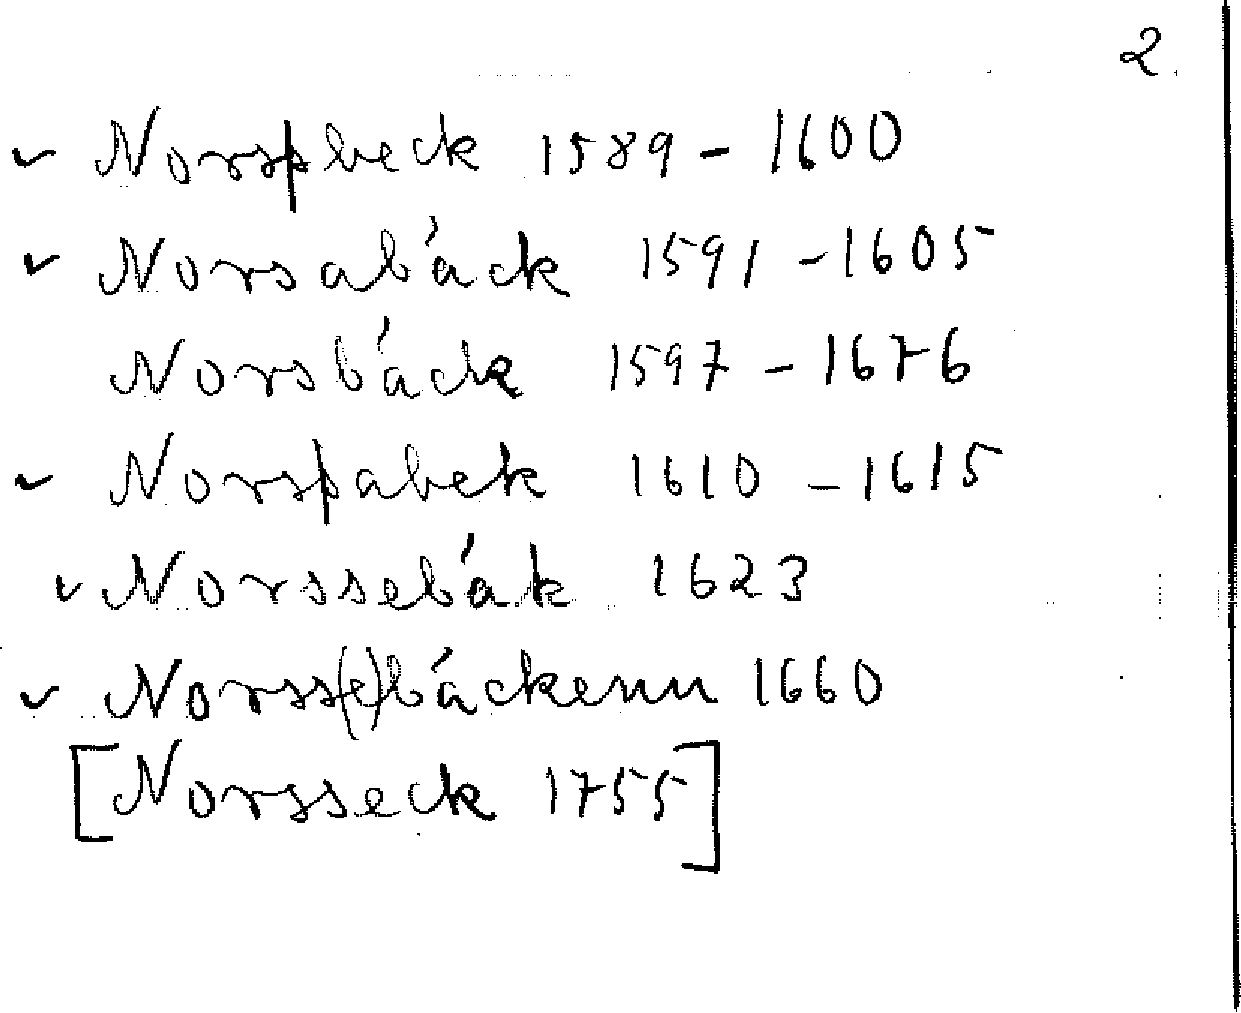 2.
✓ Norspbeck 1589 - 1600
✓ Norsabáck 1591 - 1605
Norsbáck 1597 - 1676
✓ Norspabek 1610 - 1615
✓ Norssebák 1623
✓ Norss(e)báckenn 1660
[Norsseck 1755]